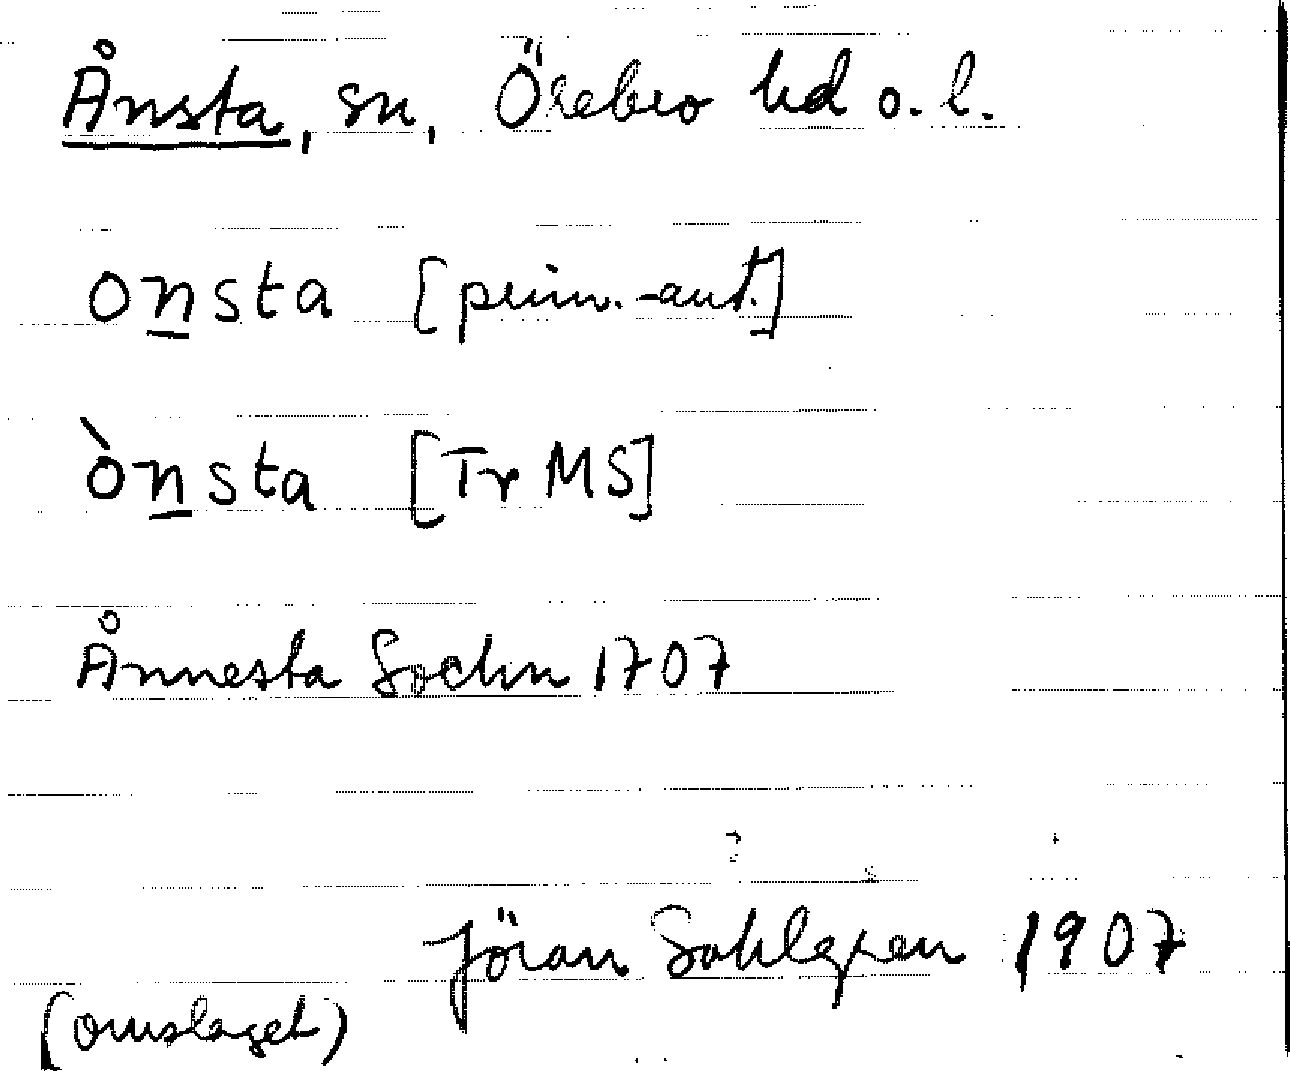 Ånsta, sn, Örebro hd o. l.
onsta [prim.-aut.]
ònsta [Tr MS]
Ånnesta Sochn 1707
Jöran Sahlgren 1907
(omslaget)